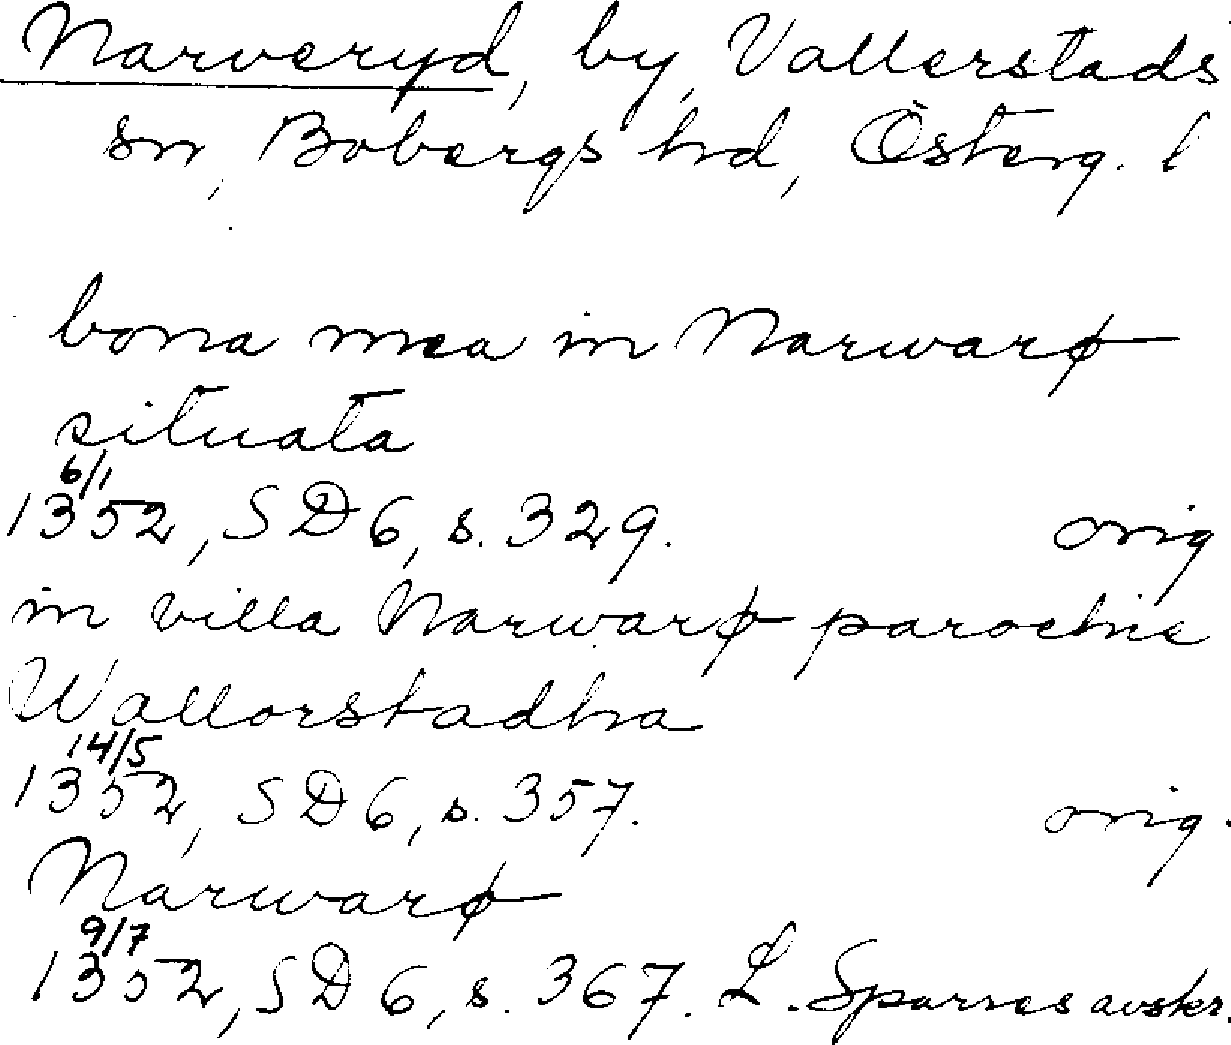 Narveryd, by, Vallerstads
sn, Bobergs hd, Österg. l
bona mea in Narwarø
situata
6/1
1352, SD 6, s. 329. orig
in villa Narwarø parochie
Wallorstadha
14/5
1352, SD 6, s. 357. orig.
Narwarø
9/7
1352, SD 6, s. 367. L. Sparres avskr.